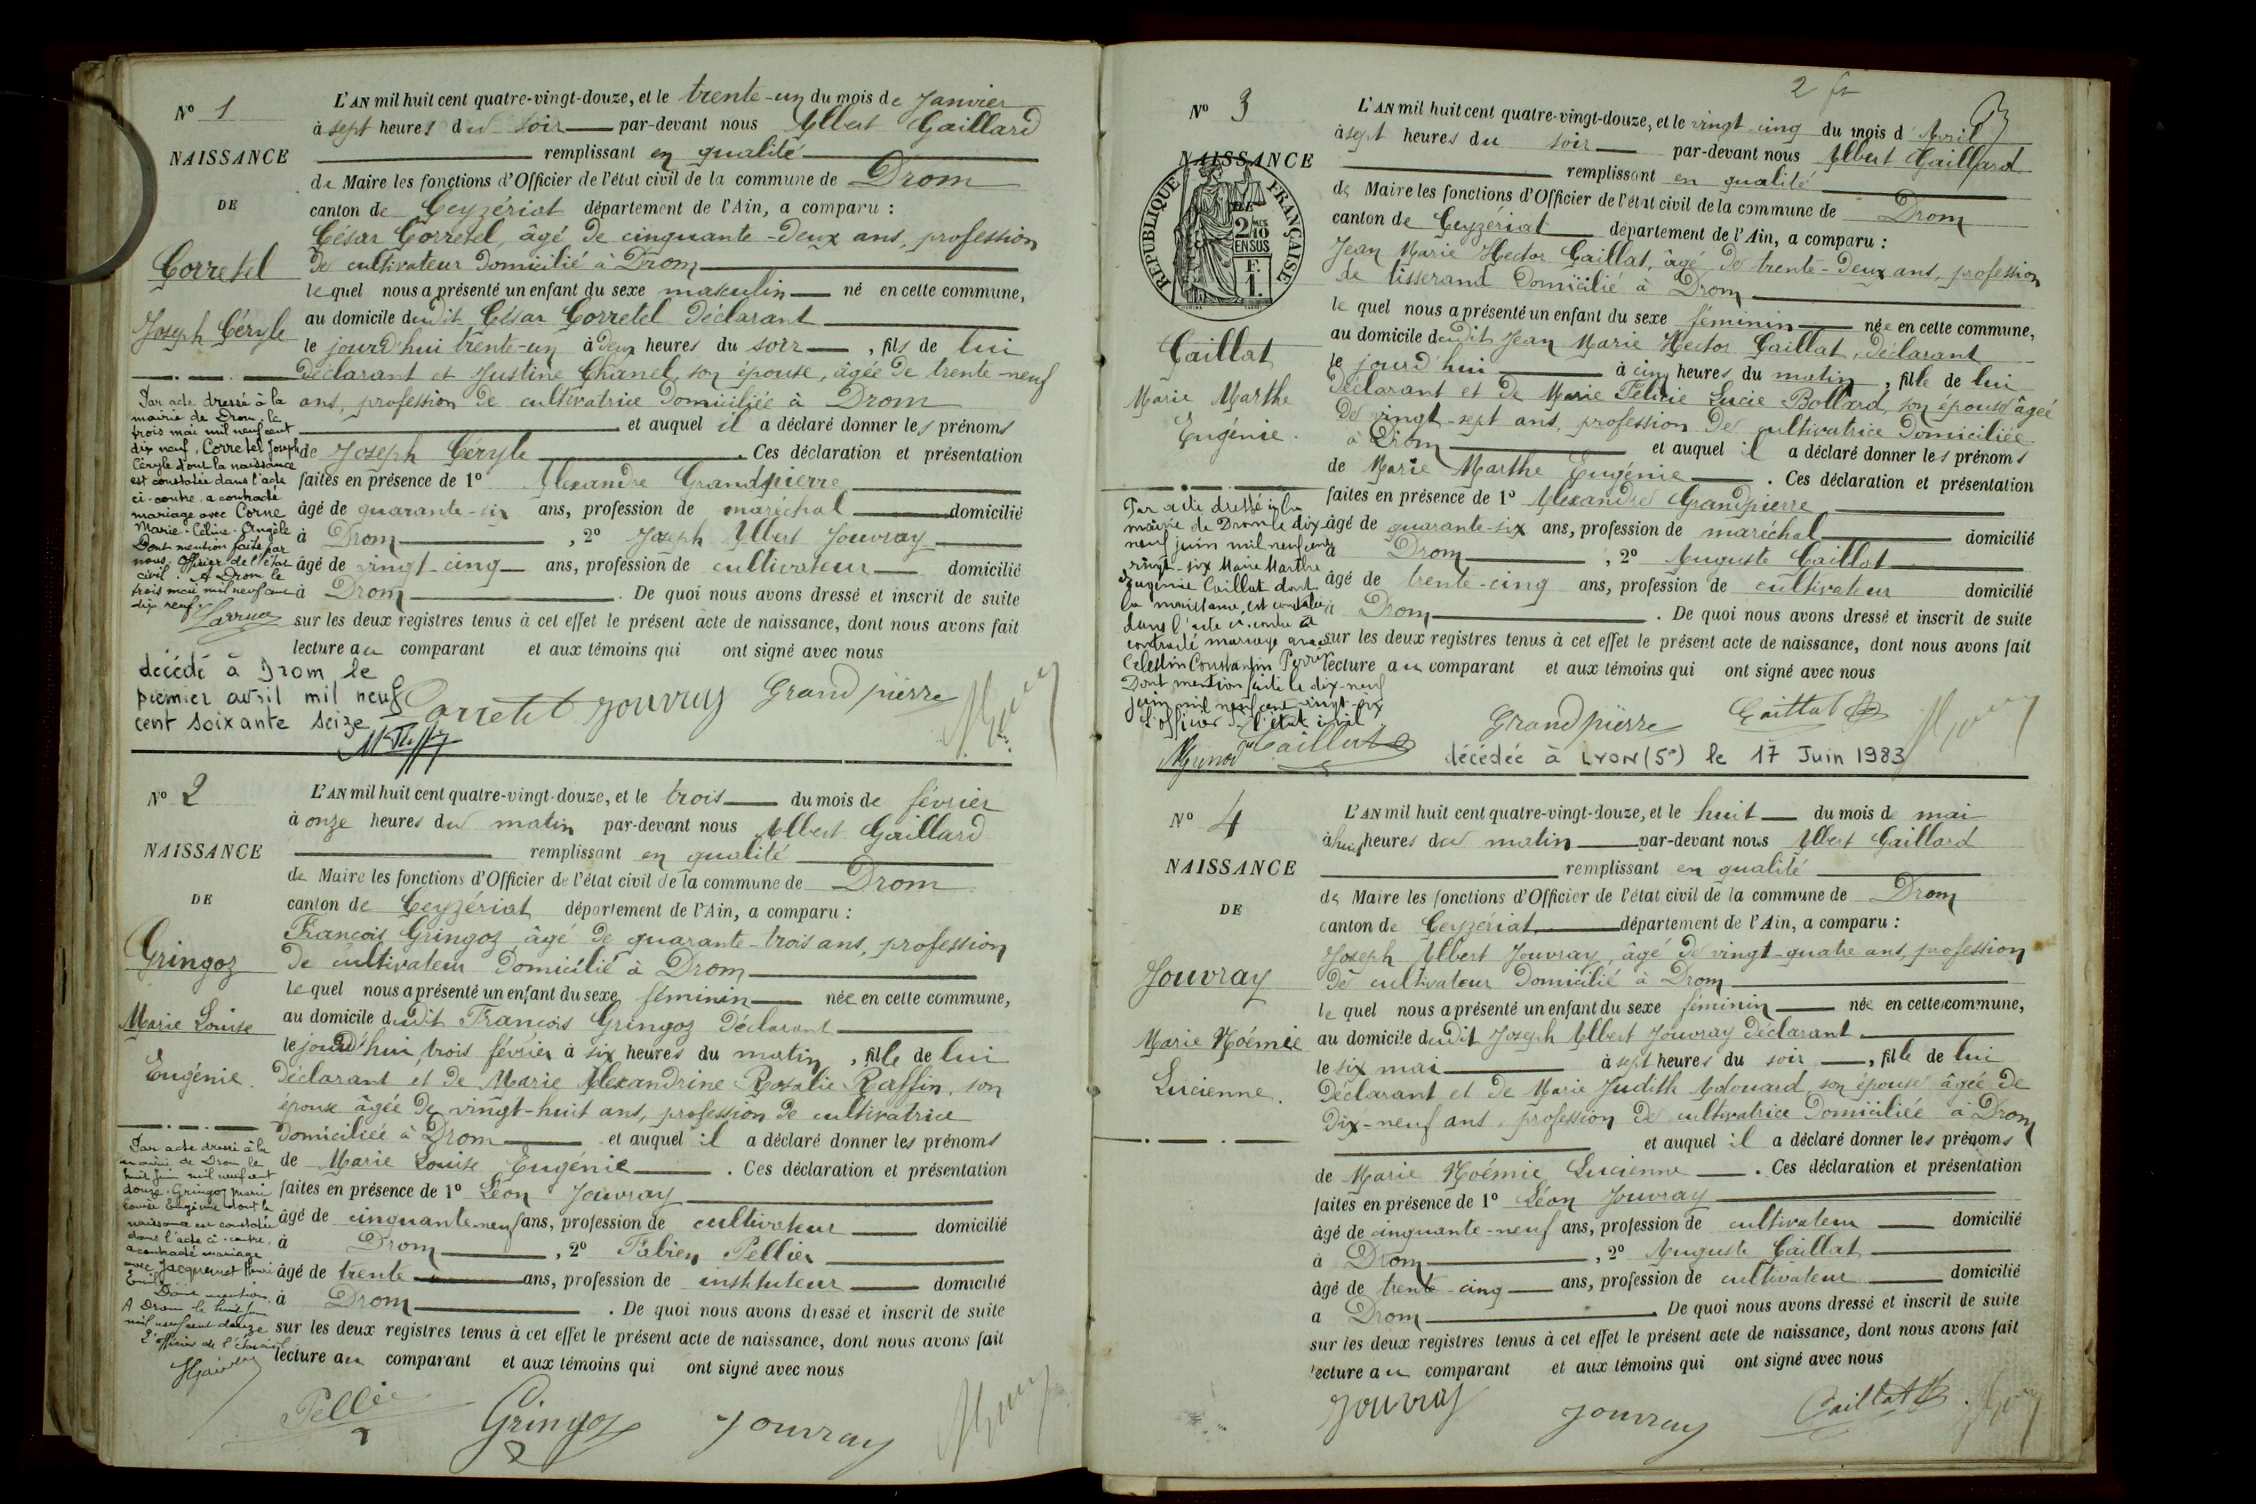 N° 1
NAISSANCE
DE
Corretel
Joseph Céryle
L'AN mil huit cent quatre-vingt-douze, et le trente-un du mois de Janvier
à sept heures du soir par-devant nous Albert Gaillard
remplissant en qualité
de Maire les fonctions d'Officier de l'état civil de la commune de Drom
canton de Ceyzériat département de l'Ain, a comparu :
César Corretel, âgé de cinquante-deux ans, profession
de cultivateur domicilié à Drom
lequel nous a présenté un enfant du sexe masculin né en cette commune,
au domicile dudit César Corretel déclarant
le jourd'hui trente-un à deux heures du soir, fils de lui
déclarant et Justine Chanel, son épouse, âgée de trente-neuf
ans, profession de cultivatrice domiciliée à Drom
et auquel il a déclaré donner les prénoms
de Joseph Céryle. Ces déclaration et présentation
faites en présence de 1° Alexandre Grandpierre
âgé de quarante-six ans, profession de maréchal domicilié
à Drom, 2° Joseph Albert Jouvray
âgé de vingt-cinq ans, profession de cultivateur domicilié
à Drom. De quoi nous avons dressé et inscrit de suite
sur les deux registres tenus à cet effet le présent acte de naissance, dont nous avons fait
lecture au comparant et aux témoins qui ont signé avec nous
Corretel Jouvray Grandpierre
Par acte dressé à la
mairie de Drom, le
trois mai mil neuf cent
dix neuf, Corretel Joseph
Céryle dont la naissance
est constatée dans l'acte
ci-contre, a contracté
mariage avec Corne
Marie-Céline-Angèle
Dont mention faite par
nous, Officier de l'état
civil. A Drom le
trois mai mil neuf cent
dix neuf.
décédé à Drom le
premier avril mil neuf
cent soixante seize
N° 2
NAISSANCE
DE
Gringoz
Marie Louise
Eugénie.
L'AN mil huit cent quatre-vingt-douze, et le trois du mois de février
à onze heures du matin par-devant nous Albert Gaillard
remplissant en qualité
de Maire les fonctions d'Officier de l'état civil de la commune de Drom
canton de Ceyzériat département de l'Ain, a comparu :
François Gringoz âgé de quarante-trois ans, profession
de cultivateur domicilié à Drom
lequel nous a présenté un enfant du sexe féminin née en cette commune,
au domicile dudit François Gringoz déclarant
le jourd'hui trois février à six heures du matin, fille de lui
déclarant et de Marie Alexandrine Rosalie Raffin, son
épouse âgée de vingt-huit ans, profession de cultivatrice
domiciliée à Drom et auquel il a déclaré donner les prénoms
de Marie Louise Eugénie. Ces déclaration et présentation
faites en présence de 1° Léon Jouvray
âgé de cinquante-neuf ans, profession de cultivateur domicilié
à Drom, 2° Fabien Pellier
âgé de trente ans, profession de instituteur domicilié
à Drom. De quoi nous avons dressé et inscrit de suite
sur les deux registres tenus à cet effet le présent acte de naissance, dont nous avons fait
lecture au comparant et aux témoins qui ont signé avec nous
Pellier Gringoz Jouvray
Par acte dressé à la
mairie de Drom le
huit juin mil neuf cent
douze, Gringoz Marie
Louise Eugénie dont la
naissance est constatée
dans l'acte ci-contre,
a contracté mariage
avec Jacquemet Henri
Emile
Dont mention,
A Drom le huit juin
mil neuf cent douze
L'officier de l'état civil
2 fr
3
N° 3
NAISSANCE
DE
RÉPUBLIQUE FRANÇAISE
2/10 EN SUS
F. 1.
Caillat
Marie Marthe
Eugénie.
L'AN mil huit cent quatre-vingt-douze, et le vingt cinq du mois d'Avril
à sept heures du soir par-devant nous Albert Gaillard
remplissant en qualité
de Maire les fonctions d'Officier de l'état civil de la commune de Drom
canton de Ceyzériat département de l'Ain, a comparu :
Jean Marie Hector Caillat, âgé de trente-deux ans, profession
de tisserand domicilié à Drom
lequel nous a présenté un enfant du sexe féminin née en cette commune,
au domicile dudit Jean Marie Hector Caillat, déclarant
le jourd'hui à cinq heures du matin, fille de lui
déclarant et de Marie Félicie Lucie Bollard, son épouse âgée
de vingt-sept ans, profession de cultivatrice domiciliée
à Drom et auquel il a déclaré donner les prénoms
de Marie Marthe Eugénie. Ces déclaration et présentation
faites en présence de 1° Alexandre Grandpierre
âgé de quarante-six ans, profession de maréchal domicilié
à Drom, 2° Auguste Caillat
âgé de trente-cinq ans, profession de cultivateur domicilié
à Drom. De quoi nous avons dressé et inscrit de suite
sur les deux registres tenus à cet effet le présent acte de naissance, dont nous avons fait
lecture au comparant et aux témoins qui ont signé avec nous
Grandpierre Caillat
Par acte dressé à la
mairie de Drom le dix
neuf juin mil neuf cent
vingt-six Marie Marthe
Eugénie Caillat dont
la naissance est constatée
dans l'acte ci-contre a
contracté mariage avec
Célestin Constantin Perret
Dont mention faite le dix-neuf
juin mil neuf cent vingt-six
L'officier de l'état civil
Caillat
décédée à LYON (5e) le 17 Juin 1983
N° 4
NAISSANCE
DE
Jouvray
Marie Noémie
Lucienne.
L'AN mil huit cent quatre-vingt-douze, et le huit du mois de mai
à huit heures du matin par-devant nous Albert Gaillard
remplissant en qualité
de Maire les fonctions d'Officier de l'état civil de la commune de Drom
canton de Ceyzériat département de l'Ain, a comparu :
Joseph Albert Jouvray, âgé de vingt-quatre ans, profession
de cultivateur domicilié à Drom
lequel nous a présenté un enfant du sexe féminin née en cette commune,
au domicile dudit Joseph Albert Jouvray déclarant
le six mai à sept heures du soir, fille de lui
déclarant et de Marie Judith Adouard son épouse âgée de
dix-neuf ans, profession de cultivatrice domiciliée à Drom
et auquel il a déclaré donner les prénoms
de Marie Noémie Lucienne. Ces déclaration et présentation
faites en présence de 1° Léon Jouvray
âgé de cinquante-neuf ans, profession de cultivateur domicilié
à Drom, 2° Auguste Caillat
âgé de trente-cinq ans, profession de cultivateur domicilié
à Drom. De quoi nous avons dressé et inscrit de suite
sur les deux registres tenus à cet effet le présent acte de naissance, dont nous avons fait
lecture au comparant et aux témoins qui ont signé avec nous
Jouvray Jouvray Caillat